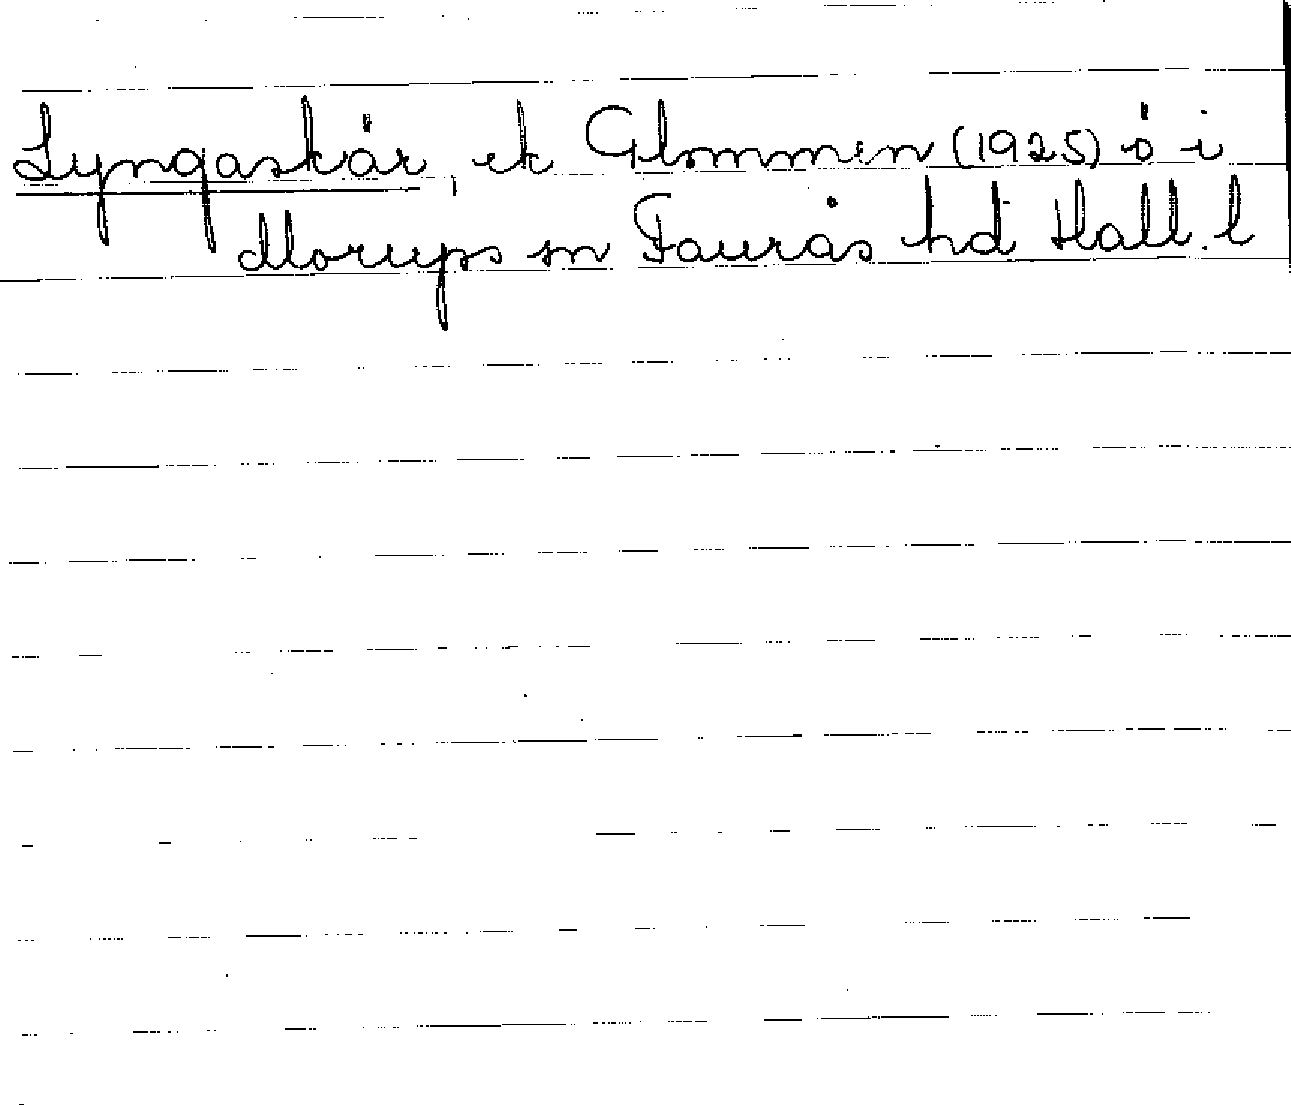 Lyngaskär, ek Glommen (1925) ö i
Morups sn Faurås hd Hall. l